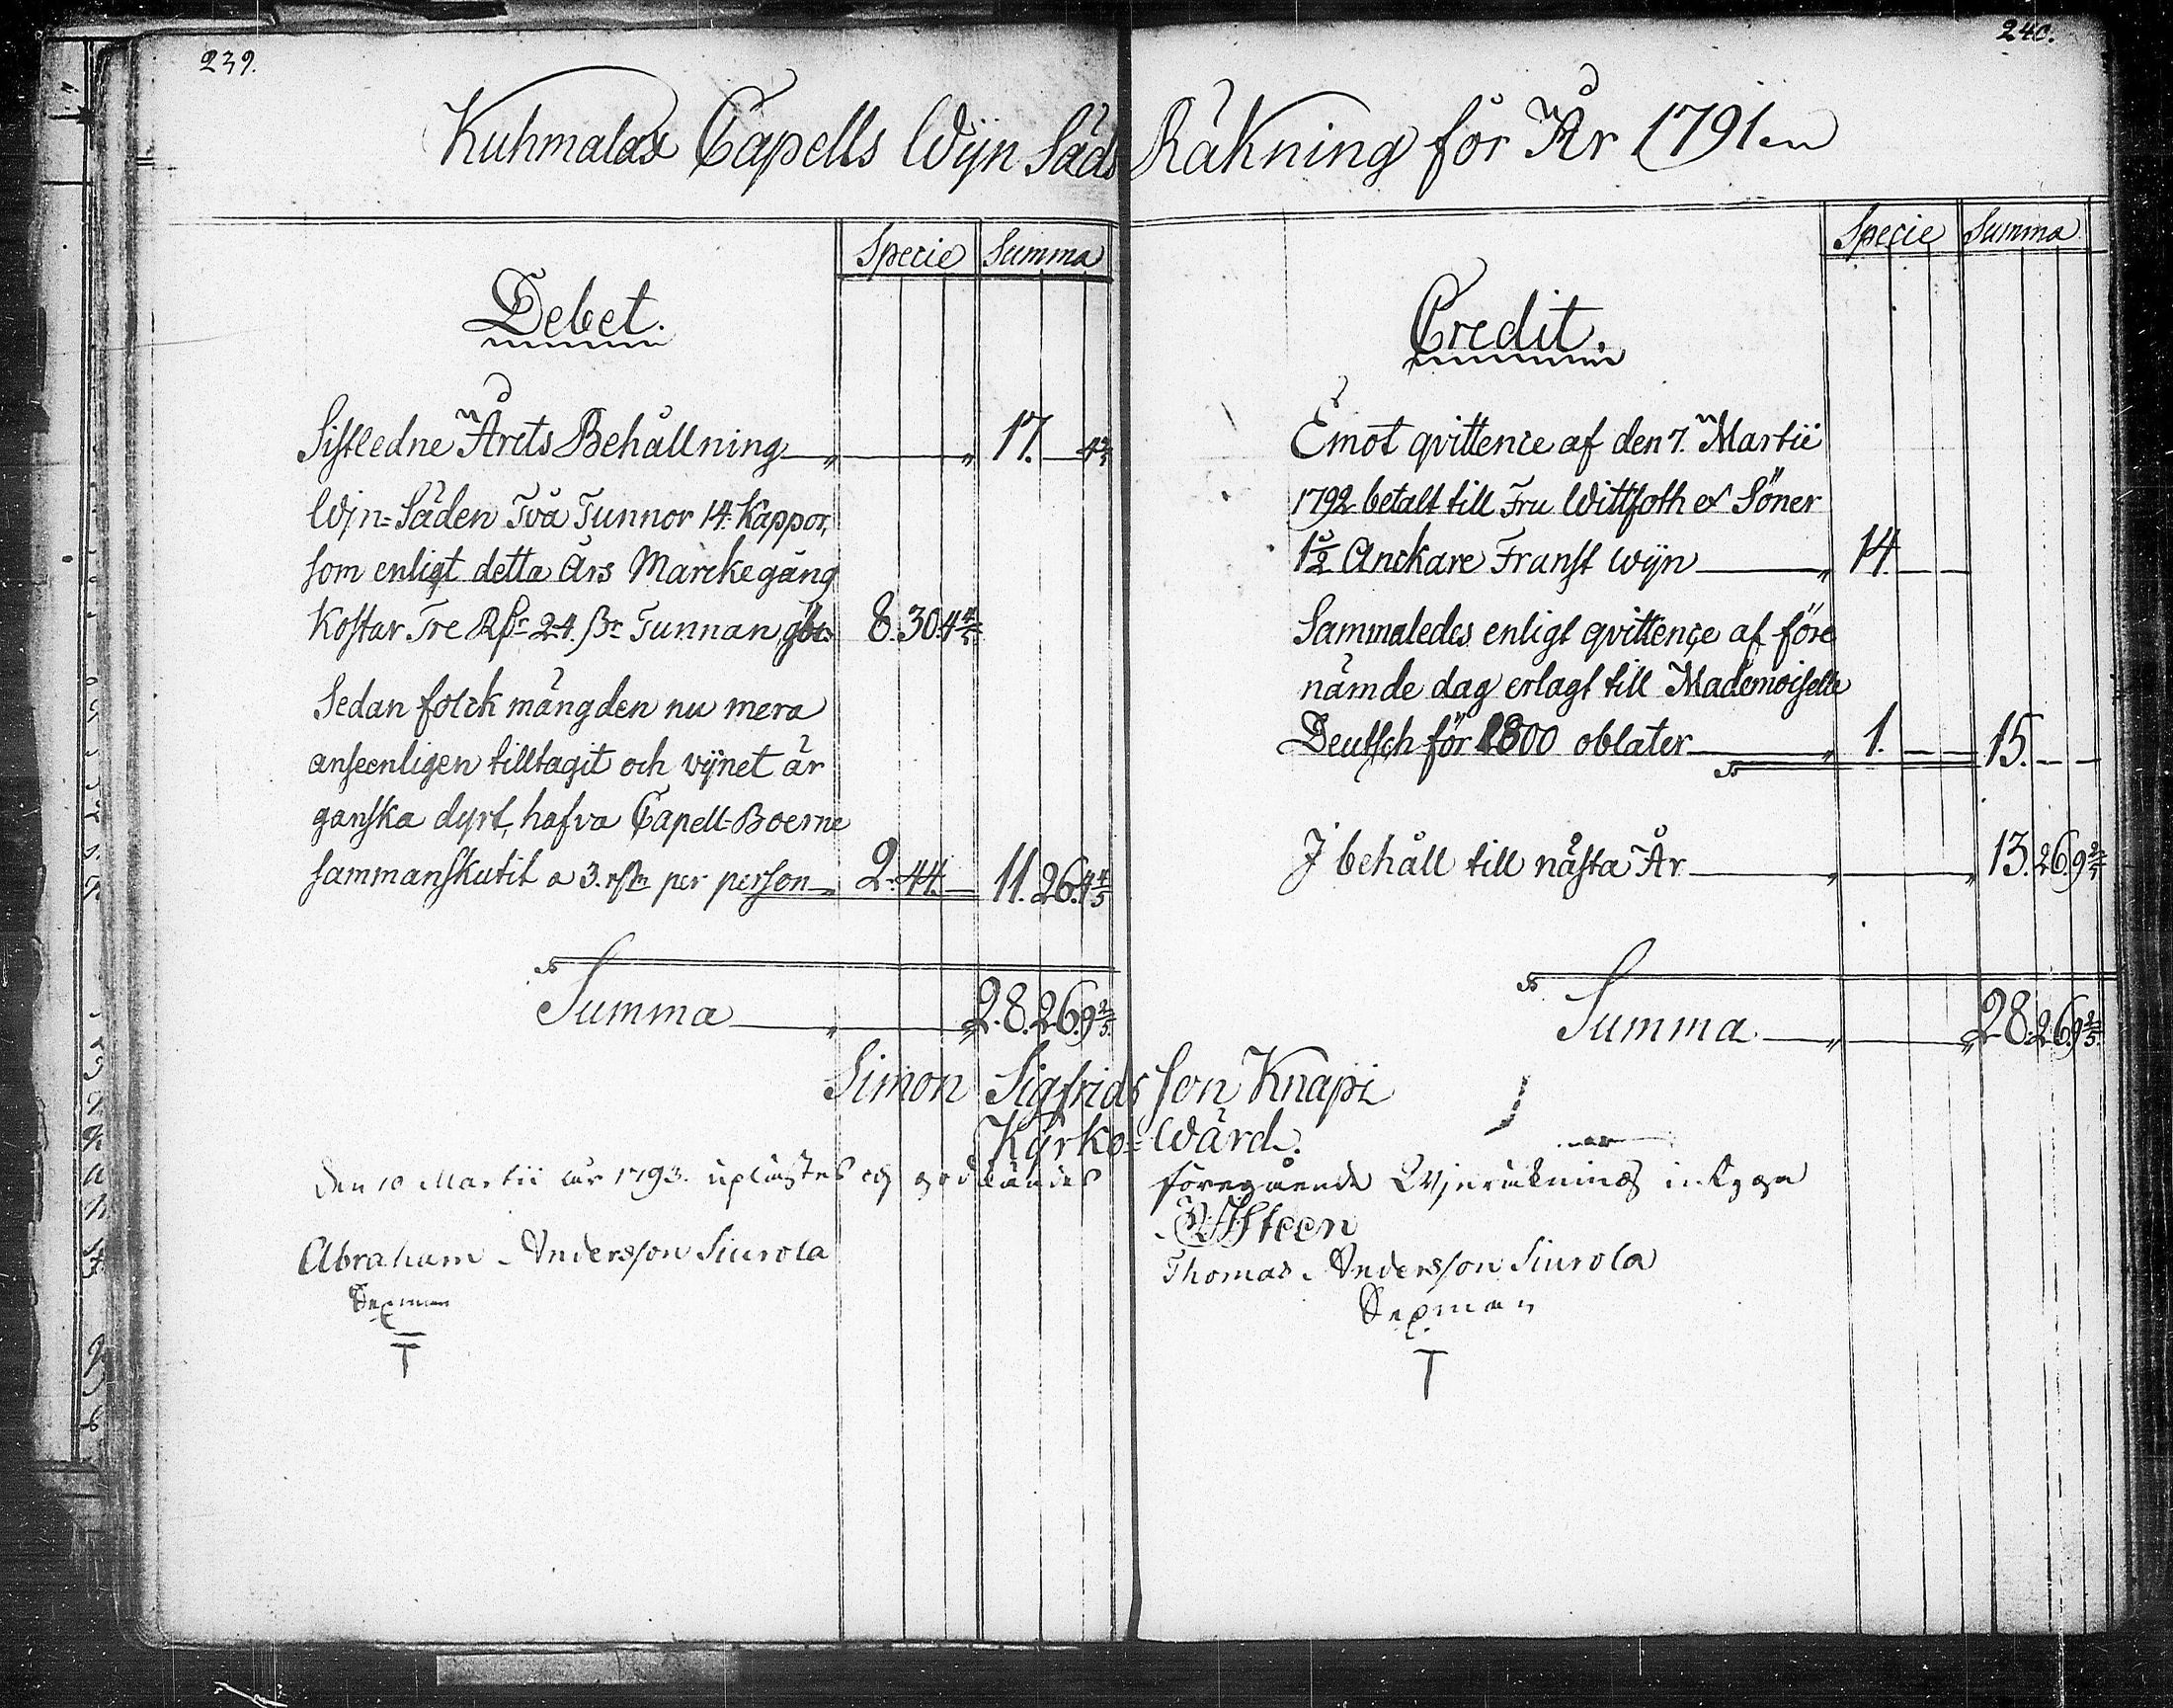 239.
240.
Kuhmalax Capells Wijn Säds Räkning för År 1791
Specie Summa
Debet.
Sistledne Årets Behållning 17.
Wijn-Säden Två Tunnor 14. Kappor,
som enligt detta Års Marckegång
Kostar Tre Rdr 24. sr Tunnan 8. 30. 4 4/5
Sedan folckmängden nu mera
anseenligen tilltagit och vijnet är
ganska dyrt, hafva Capell-Boerne
sammanskutit a 3. per person 2. 44. 11. 26. 4 4/5
Summa 28. 26. 9 2/5
Specie Summa
Credit.
Emot qvittence af den 7. Martii
1792 betalt till Fru Wittfoth & Söner
1 1/2 Anckare Franst wijn 14.
Sammaledes enligt qvittence af före
nämde dag erlagt till Mademoiselle
Deutsch för 1800 oblater 1. 15.
I behåll till nästa År 13. 26. 9 2/5
Summa 28. 26. 9 2/5
Simon Sigfridsson Knapi
Kyrko-Wärd.
Den 10 Martii år 1793. uplästes och godkändes föregående Wijnräkning
Steen
Abraham Andersson Siurola
Sexman
Thomas Andersson Siurola
Sexman